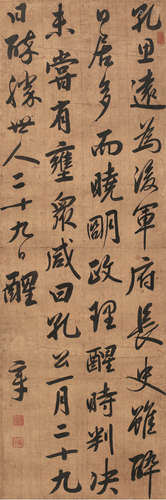 孔思遠為後軍府長史雖醉
日居多而曉明政理醒時判决
未嘗有壅眾咸曰孔公一月二十九
日醉勝世人二十九日醒